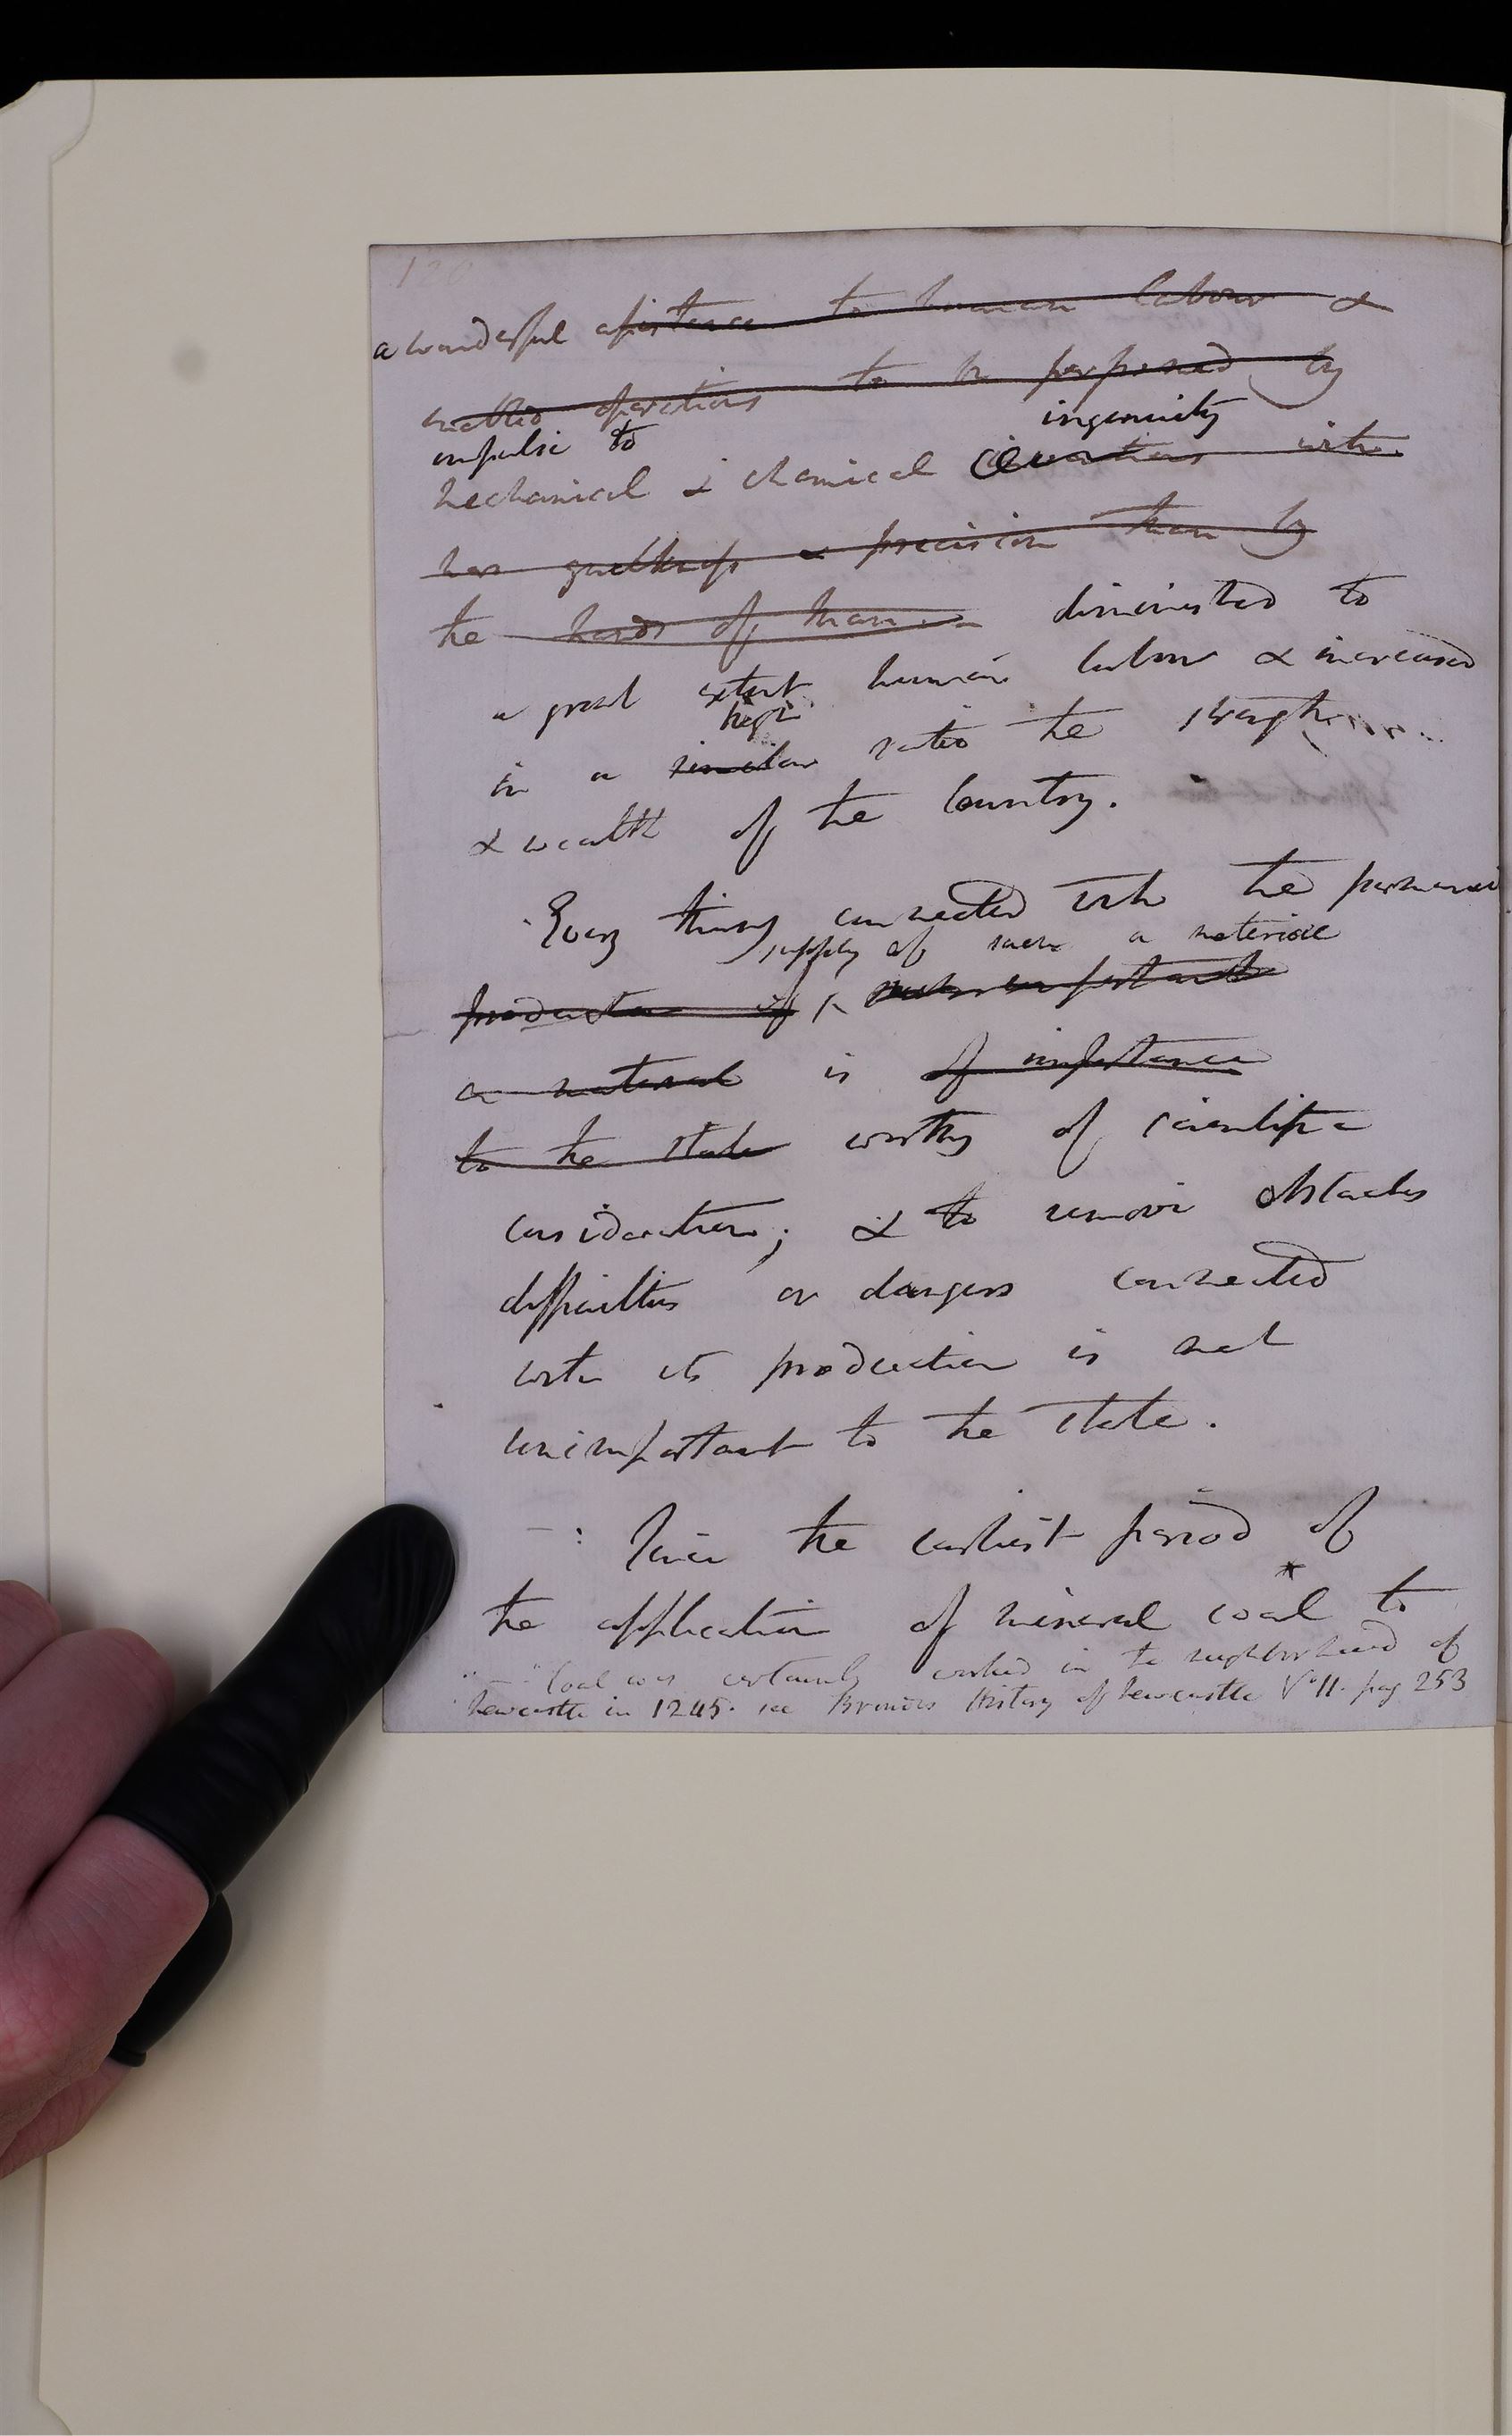 120
a wonderful assistance to human labour &
enabled operations to be performed by
impulse to ingenuity
mechanical & chemical inventions with
more quickness & precision than by
the hands of man diminished to
a great extent human labour & increased
high
in a similar ratio the strength
& wealth of the Country.
Every thing connected with the permanent
supply of such a material
production of such important
a material is of importance
to the state worthy of scientific
consideration; & to remove obstacles
difficulties or dangers connected
with its production is not
unimportant to the state.
Since the earliest period of
the application of mineral coal * to
Coal was certainly worked in the neighborhood of
Newcastle in 1245. see Brands History of Newcastle Vol II. pag 253